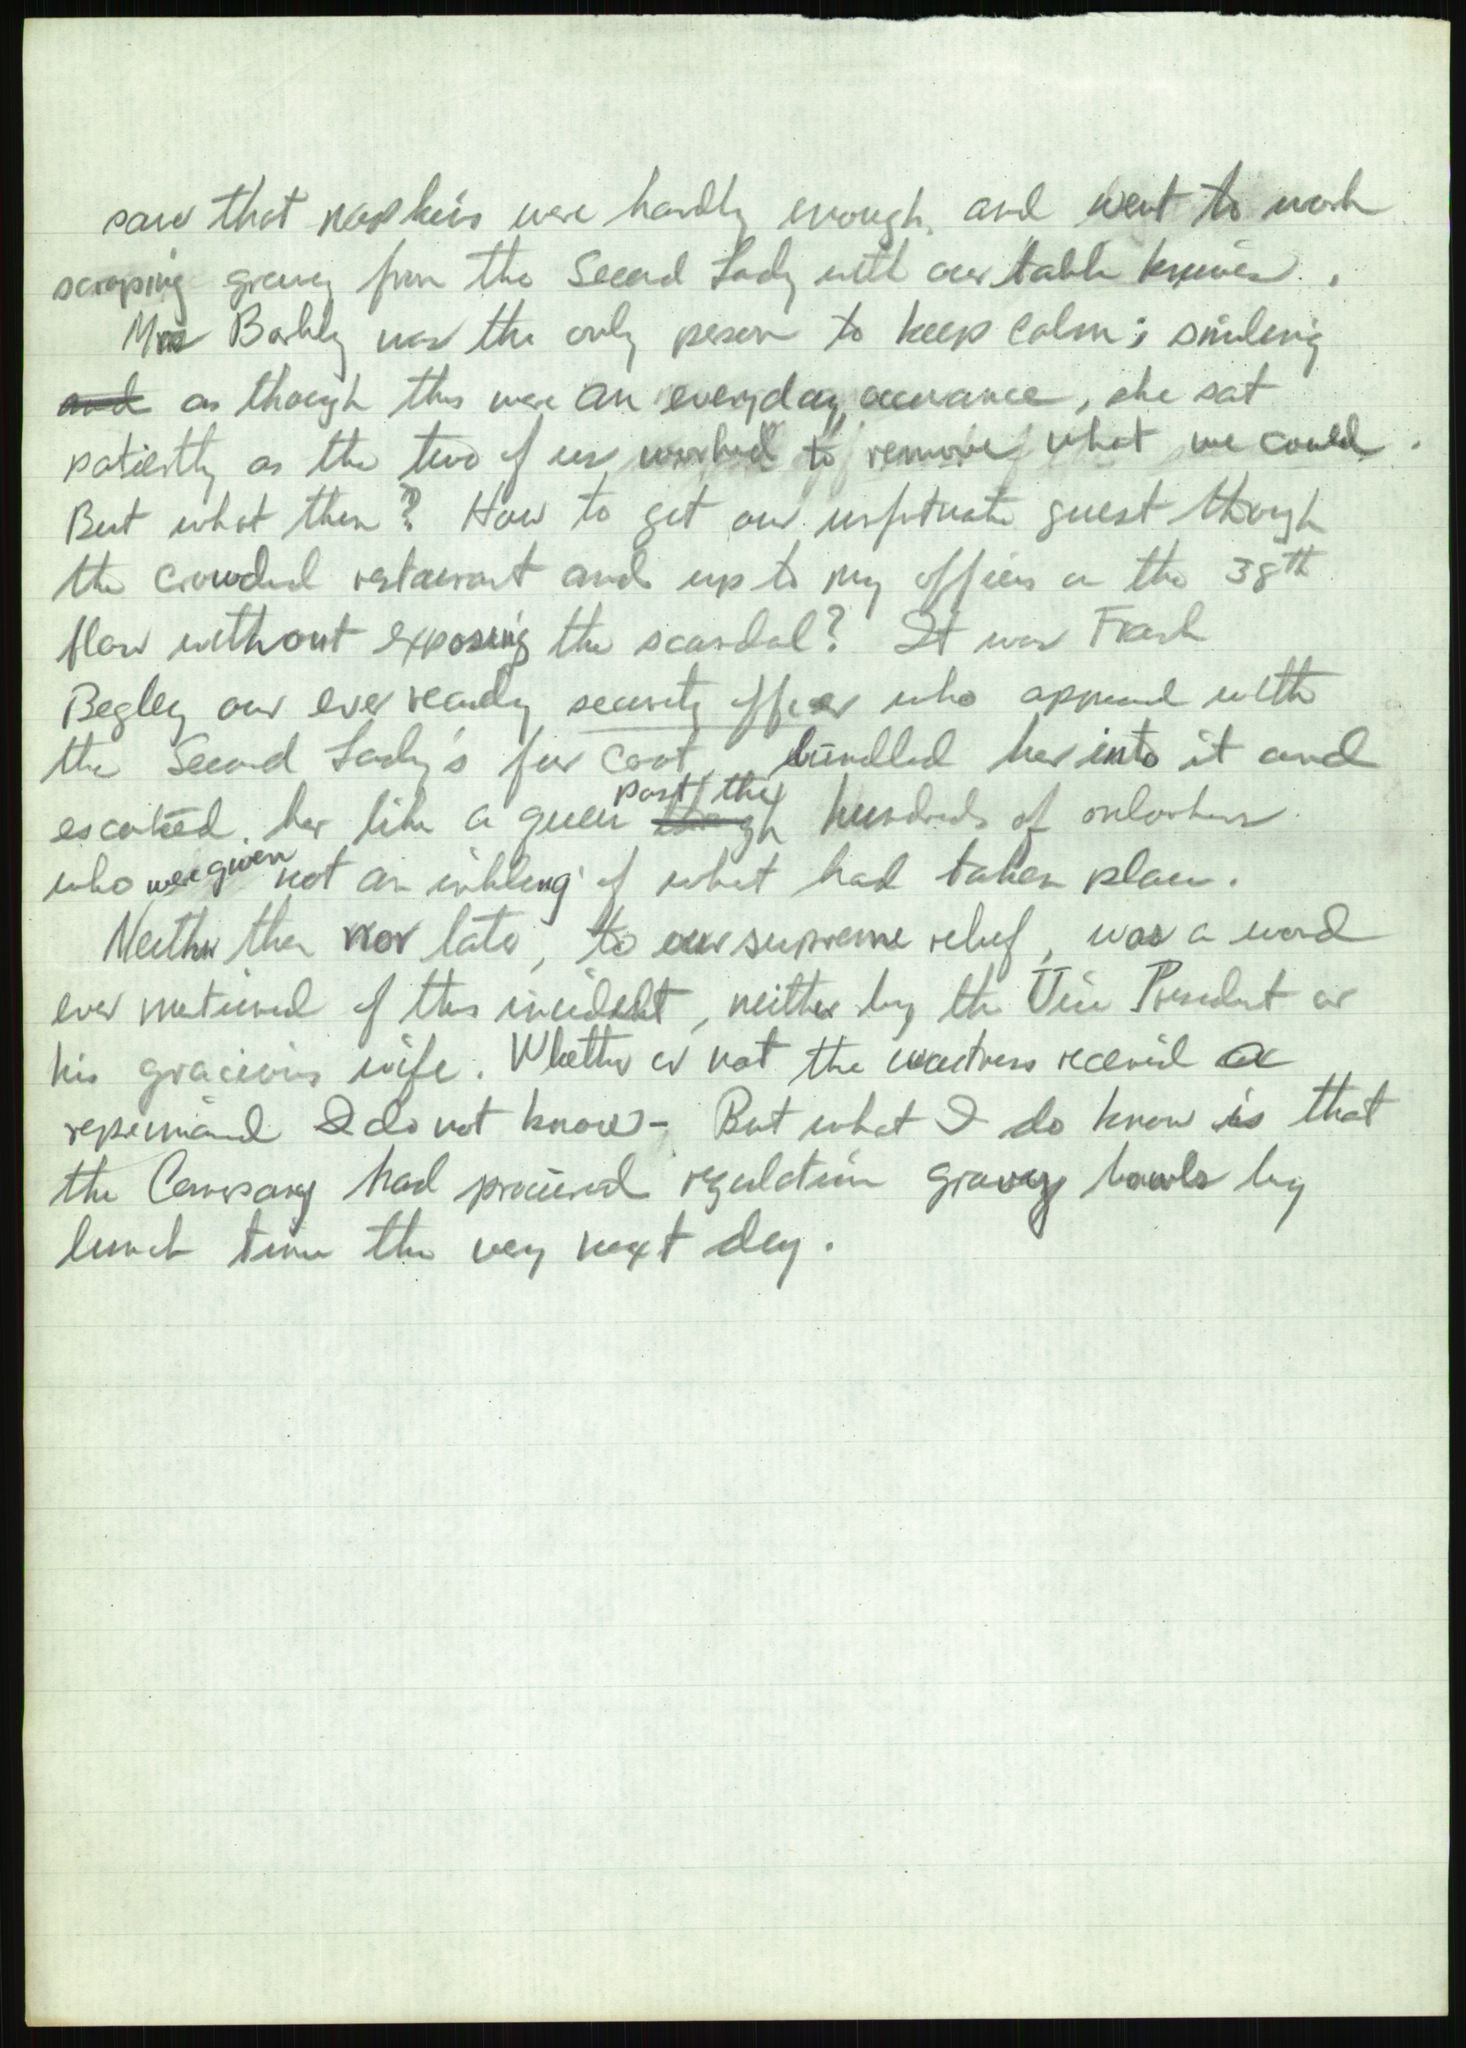 saw that napkins were hardly enough, and went to work
scraping gravy from the Second Lady with our table knives.
Mrs Barkley was the only person to keep calm; smiling
and as though this were an everyday occurance, she sat
patiently as the two of us worked to remove what we could.
But what then? How to get our unfortunate guest though
the crowded restaurant and up to my offices on the 38th
floor without exposing the scandal? It was Frank
Begley our ever ready security officer who appeared with
the Second Lady's fur coat, bundled her into it and
escorted her like a queen though past the hundreds of onlookers
who were given not an inkling of what had taken place.
Neither then nor later, to our supreme relief, was a word
ever mentioned of this incident, neither by the Vice President or
his gracious wife. Whether or not the waitress received a
reprimand I do not know - But what I do know is that
the Company had procured regulation gravy bowls by
lunch time the very next day.